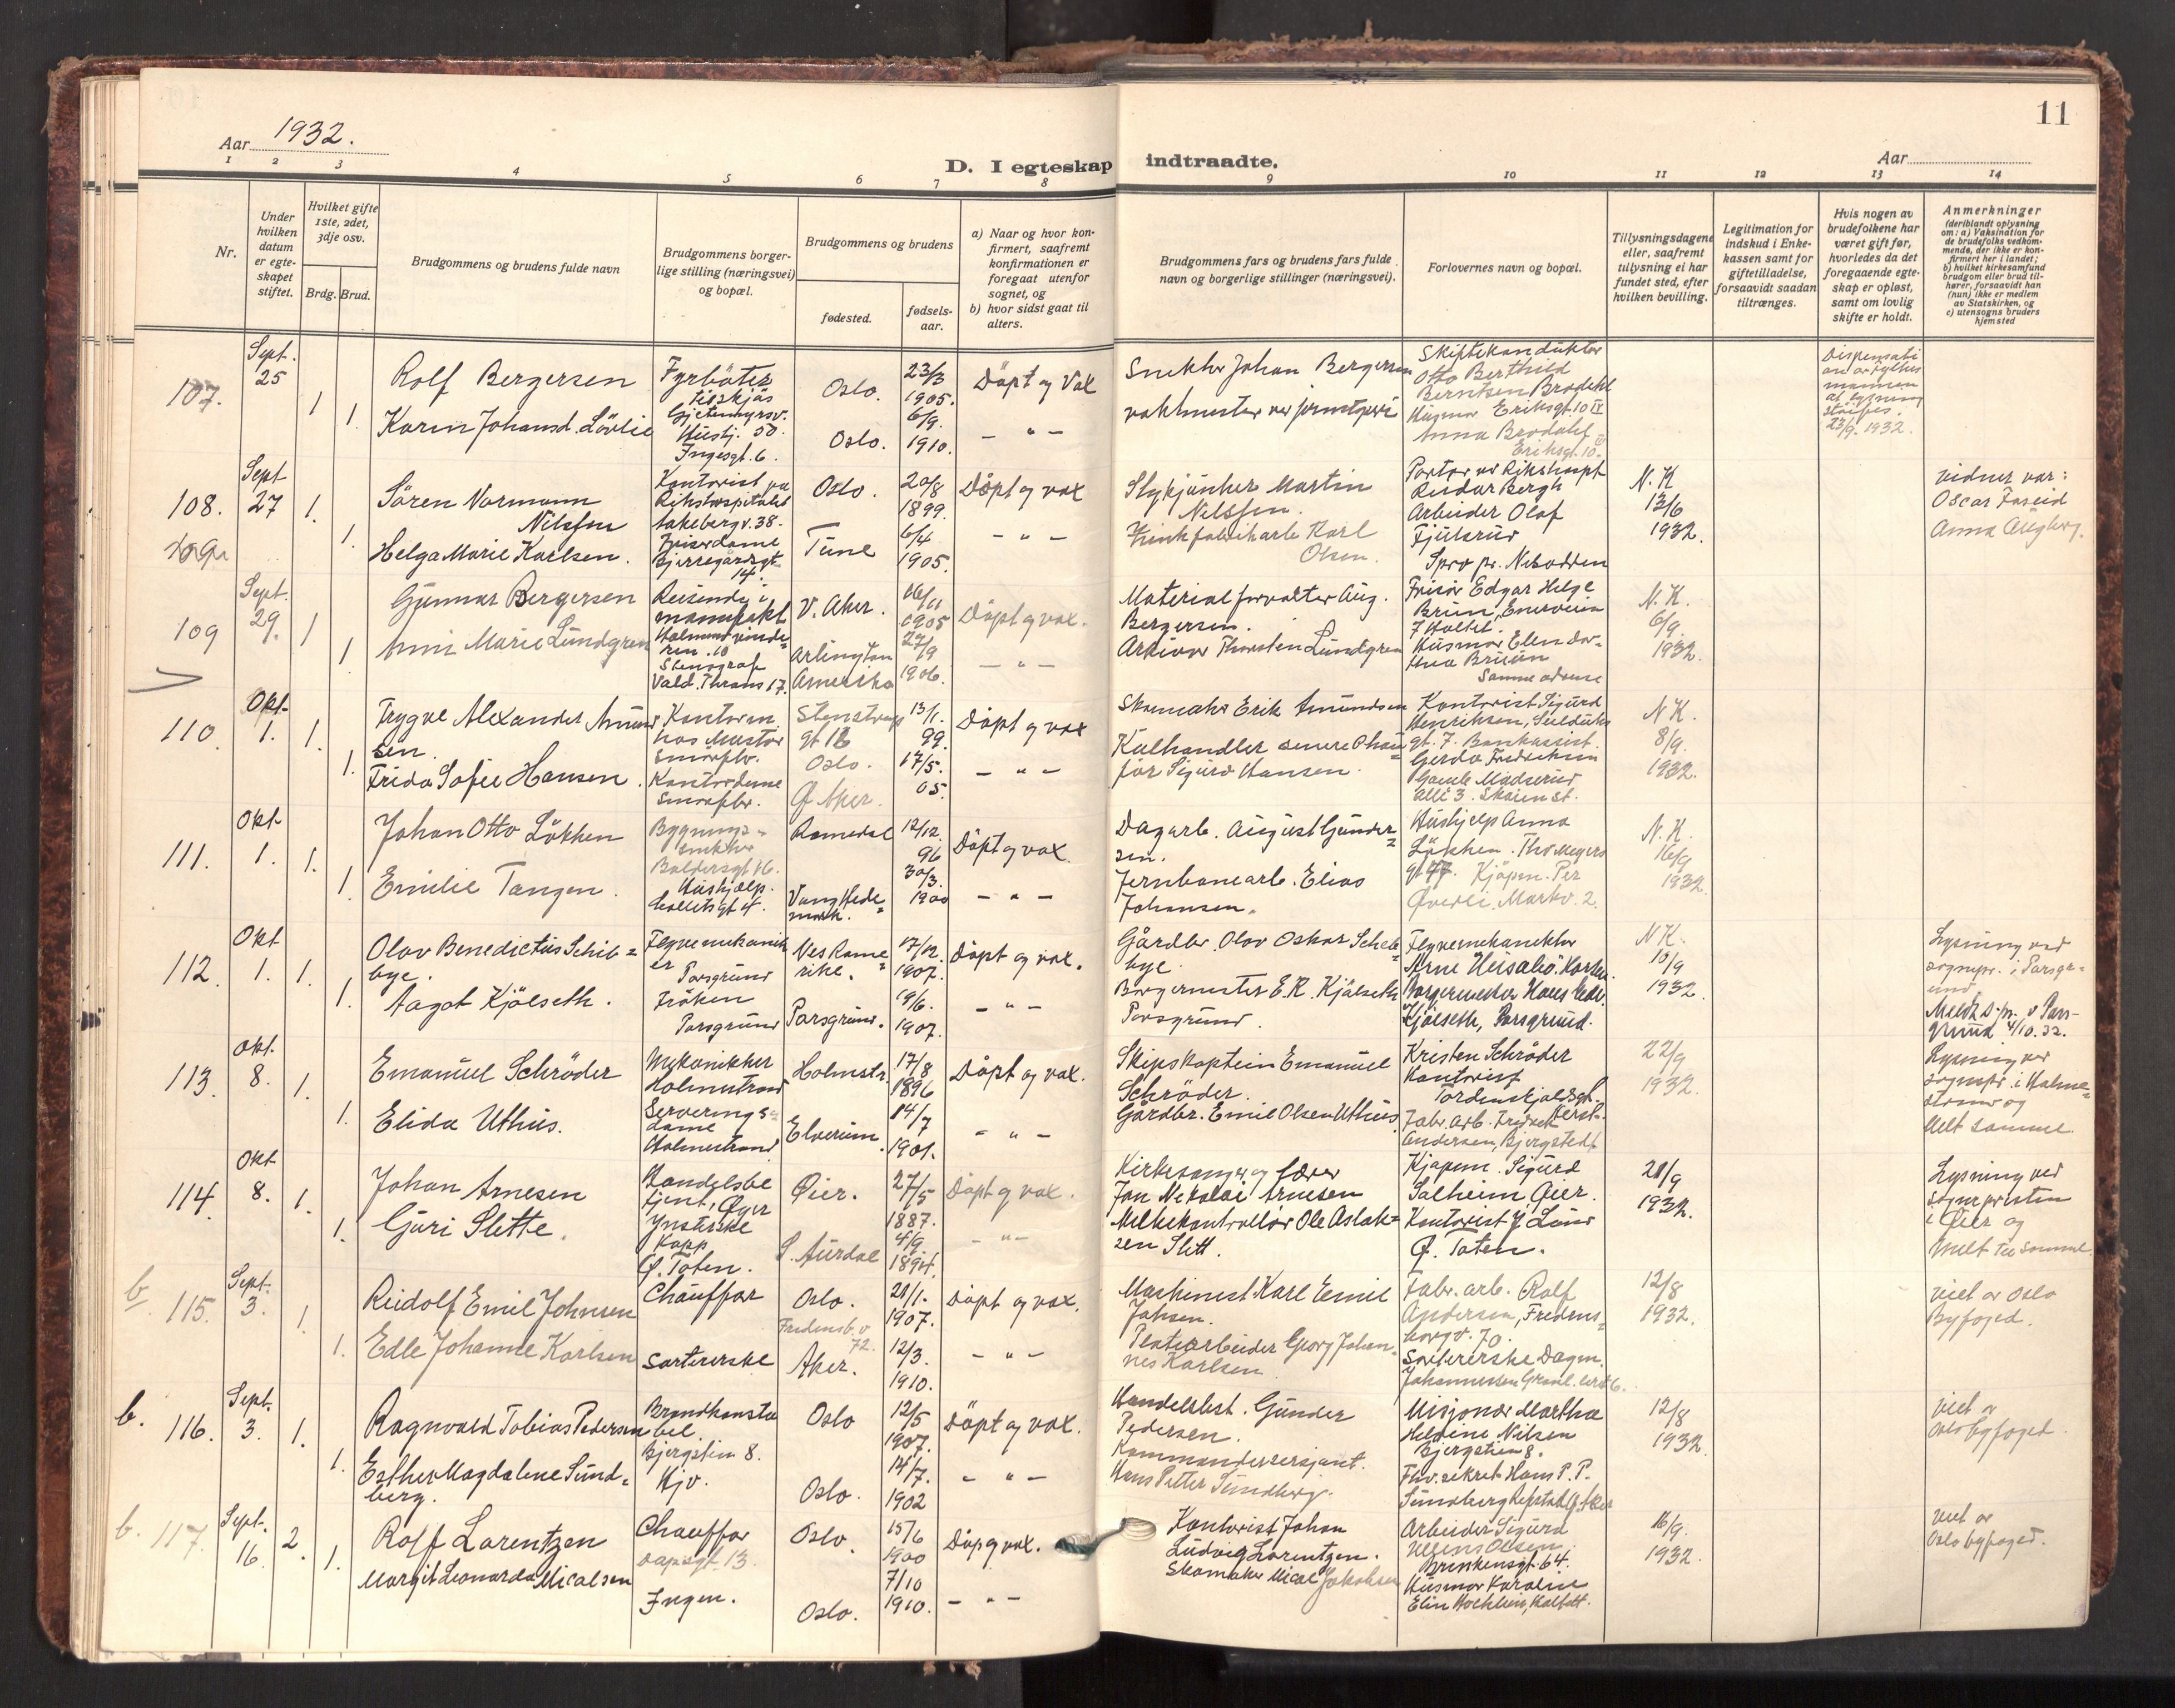 11
Aar 1932.
D. I egteskap indtraadte.
Aar
1 2 3 4 5 6 7 8 9 10 11 12 13 14
Nr.
Under
hvilken
datum
er egte-
skapet
stiftet.
Hvilket gifte
1ste, 2det,
3dje osv.
Brdg. Brud.
Brudgommens og brudens fulde navn
Brudgommens borger-
lige stilling (næringsvei)
og bopæl.
Brudgommens og brudens
fødested.
fødsels-
aar.
a) Naar og hvor kon-
firmert, saafremt
konfirmationen er
foregaat utenfor
sognet, og
b) hvor sidst gaat til
alters.
Brudgommens fars og brudens fars fulde
navn og borgerlige stillinger (næringsvei).
Forlovernes navn og bopæl.
Tillysningsdagene
eller, saafremt
tillysning ei har
fundet sted, efter
hvilken bevilling.
Legitimation for
indskud i Enke-
kassen samt for
giftetilladelse,
forsaavidt saadan
tiltrænges.
Hvis nogen av
brudefolkene har
været gift før,
hvorledes da det
foregaaende egte-
skap er opløst,
samt om lovlig
skifte er holdt.
Anmerkninger
(deriblandt oplysning
om: a) Vaksination for
de brudefolks vedkom-
mende, der ikke er kon-
firmert her i landet;
b) hvilket kirkesamfund
brudgom eller brud til-
hører, forsaavidt han
(hun) ikke er medlem
av Statskirken, og
c) utensogns bruders
hjemsted
107.
Sept.
25
1
1.
Rolf Bergersen
Karin Johansd. Lövlie
Fyrböter
Hushj. 50.
Ingesgt. 6.
Oslo.
Oslo.
23/3
1905.
6/9.
1910.
Döpt og Vax
- " -
Snekker Johan Bergersen
Otto Berthild
Berntsen Brodahl
Husmor Eriksgt. 10 IV
Anna Brodahl
Eriksgt. 10.
23/9. 1932.
108.
Sept
27
1.
1.
Sören Normann
Nilssen
Helga Marie Karlsen.
Kontorist
Rikshospitalet
Akebergv. 38.
Frisördame
Bjerregårdsgt
14.
Oslo.
Tune
20/8
1899.
6/4
1905.
Döpt og vax
- " -
Martin
Nilssen.
Karl
Olsen.
Reidar Bergh
Arbeider Olaf
Fjulsrud
Spro pr. Nesodden
N. K
13/6
1932.
vidner var:
109
Sept.
29.
1
1
Gunnar Bergersen
Anni Marie Lundgren
Reisende i
manufakt
Stenograf
Vald. Thranes 17.
V. Aker.
Arlington
Amerika
1905
27/9
1906.
Döpt og vax.
- " -
Materialforvalter Aug.
Bergersen.
Arkivar Thorsten Lundgren
Frisör Edgar Helge
Husmor Ellen Dor-
thea Bruun
Samme adresse
N. K.
6/9.
1932.
110.
Okt.
1.
1.
1.
Trygve Alexander Amund
sen.
Frida Sofie Hansen.
Oslo.
Ø. Aker.
13/1.
99.
17/5.
05.
Döpt og vax
- " -
Skomaker Erik Amundsen
Kulhandler senere Chau
för Sigurd Hansen.
Kontorist Sigurd
Gerda Fredriksen
N K.
8/9.
1932.
111.
Okt
1.
1.
1.
Johan Otto Lökken
Emilie Tangen.
Bygnings-
snekker
Baldersgt 16.
Hushjelp.
Collettsgt 4.
Romedal
Vang Hede=
mark.
12/12.
96
30/3.
1900
Döpt og vax.
- " -
Dagarb. August Gunder=
sen.
Jernbanearb. Elias
Johansen.
Hushjelp Anna
Lökken. Thv. Meyers
gt 47. Kjöpm. Per
Överli. Markv. 2.
N. K.
16/9
1932.
112.
Okt
1.
1.
1.
Olav Benedictus Schib=
bye.
Aagot Kjölseth.
Flyvemekanik
er
Porsgrund
Fröken
Porsgrund
Nes Rome=
rike.
Porsgrund.
17/12.
1907.
19/6.
1907.
Döpt og vax.
- " -
Gårdbr. Olav Oskar Schib=
bye.
Borgermester E. R. Kjölseth
Porsgrund.
Flyvemekaniker
Borgermester Hans
Kjölseth, Porsgrund.
N K.
10/9
1932.
Lysning ved
sognepr. i Porsgr=
und.
Meldt s.pr. i Pors-
grund 4/10.32.
113.
Okt.
8.
1.
1.
Emanuel Schröder
Elida Uthus.
Mekanikker
Holmestrand
Serverings=
dame
Holmestrand
Holmestr.
Elverum.
17/8
1896
14/7
1901.
Döpt og vax.
- " -
Skipskaptein Emanuel
Schröder.
Gårdbr. Emil Olsen Uthus.
Kristen Schröder
Kontorist
Tordenskjoldsgt.
Andersen, Bjergstedt
22/9
1932.
Lysning ved
sognepr. i Holme=
strand og
Melt samme.
114.
Okt
8.
1.
1.
Johan Arnesen
Guri Slette.
Handelsbe
tjent, Øyer
Kapp
Ø. Toten.
Øier.
S. Aurdal
27/5
1887.
4/9.
1894.
Döpt og vax.
- " -
Kirkesanger og lærer
Jon Nikolai Arnesen
Melkekontrollör Ole Aslak=
sen Slett.
Kjöpm. Sigurd
Solheim Øier.
Kontorist J. Lund
Ø. Toten.
21/9
1932.
Lysning ved
Sognepresten
i Øier og
Melt til samme.
b
115.
Sept.
3.
1.
1.
Rudolf Emil Johnsen
Edle Johanne Karlsen
Chauffør
Sortererske
Oslo.
Fredensb.v
72.
Aker.
21/1.
1907.
12/3.
1910.
Döpt og vax.
- " -
Maskinist Karl Emil
Johsen.
Platearbeider Georg Johan-
nes Karlsen
Fabr. arb. Rolf
Andersen, Fredens=
borgv. 70.
Sortererske Dagm.
12/8
1932.
viet av Oslo
Byfoged.
b.
116.
Sept.
3.
1.
1.
Ragnvald Tobias Pedersen
Esther Magdalene Sund=
berg.
Brandkonsta
bel.
Bjergstien 8.
Hjv.
Oslo
Oslo.
12/5
1907.
14/7.
1902
Döpt og vax.
- " -
Handelsbest. Gunder
Pedersen.
Kommandersersjant.
Hans Petter Sundberg.
Misjonær Martha
Heldine Nilsen
Bjergstien 8.
Fhv. sekret. Hans P. P.
12/8
1932.
viet av
Oslo byfoged.
b.
117.
Sept.
16.
2.
1.
Rolf Lorentzen
Margit Leonarda Micalsen
Chauffør
Dopsgt. 13.
Ingen.
Oslo.
Oslo.
15/6
1900
7/10
1910.
Döp og vax.
- " -
Kontorist Johan
Ludvig Lorentzen.
Skomaker Mical Jakobsen
Arbeider Sigurd
Brinkensgt. 64.
Husmor Karoline
16/9.
1932.
viet av
Oslo byfoged.